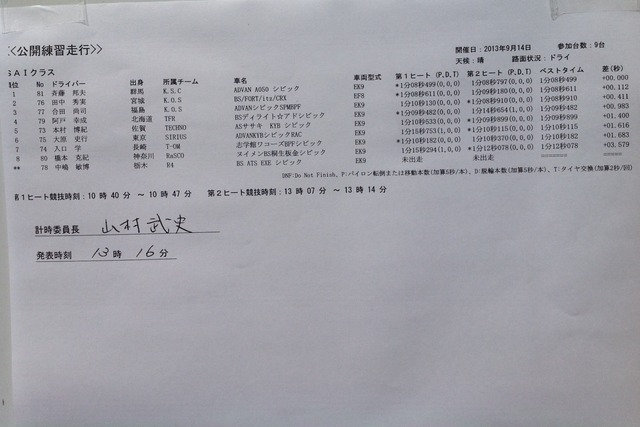 <<公開練習走行>>
開催日：2013年9月14日　参加台数：9台
天候：晴　路面状況：ドライ
SAIクラス
順位 No ドライバー 出身 所属チーム 車名 車両型式 第1ヒート (P,D,T) 第2ヒート (P,D,T) ベストタイム 差(秒)
1 81 斉藤 邦夫 群馬 K.S.C ADVAN A050 シビック EK9 *1分08秒499(0,0,0) 1分08秒797(0,0,0) 1分08秒499 +00.000
2 76 田中 秀実 宮城 K.O.S BS/FORT/its/CRX EF8 *1分08秒611(0,0,0) 1分08秒180(0,0,0) 1分08秒611 +00.112
3 77 合田 尚司 福島 K.O.S ADVANシビックSPMBPF EK9 1分10秒130(0,0,0) *1分08秒910(0,0,0) 1分08秒910 +00.411
4 79 阿戸 幸成 北海道 TFR BSディライト☆アドシビック EK9 *1分09秒482(0,0,0) 1分14秒654(1,0,0) 1分09秒482 +00.983
5 73 本村 博紀 佐賀 TECHNO ASササキ KYB シビック EK9 1分10秒533(0,0,0) *1分09秒899(0,0,0) 1分09秒899 +01.400
6 75 大原 史行 東京 SIRIUS ADVANKYBシビックRAC EK9 1分15秒753(1,0,0) *1分10秒115(0,0,0) 1分10秒115 +01.616
7 74 入口 学 長崎 T-OM 志学館ワコーズBPFシビック EK9 *1分10秒182(0,0,0) 1分10秒370(0,0,0) 1分10秒182 +01.683
8 80 橋本 克紀 神奈川 RaSCO ヌイメンBS桐生板金シビック EK9 1分15秒294(1,0,0) *1分12秒078(0,0,0) 1分12秒078 +03.579
** 78 中嶋 敏博 栃木 R4 BS ATS EXE シビック EK9 未出走 未出走 ======
DNF:Do Not Finish, P:パイロン転倒または移動本数(加算5秒/本), D:脱輪本数(加算5秒/本), T:タイヤ交換(加算2秒/回)
第1ヒート競技時刻：10時40分 ～10時47分　第2ヒート競技時刻：13時07分 ～13時14分
計時委員長 山村武史
発表時刻 13時16分